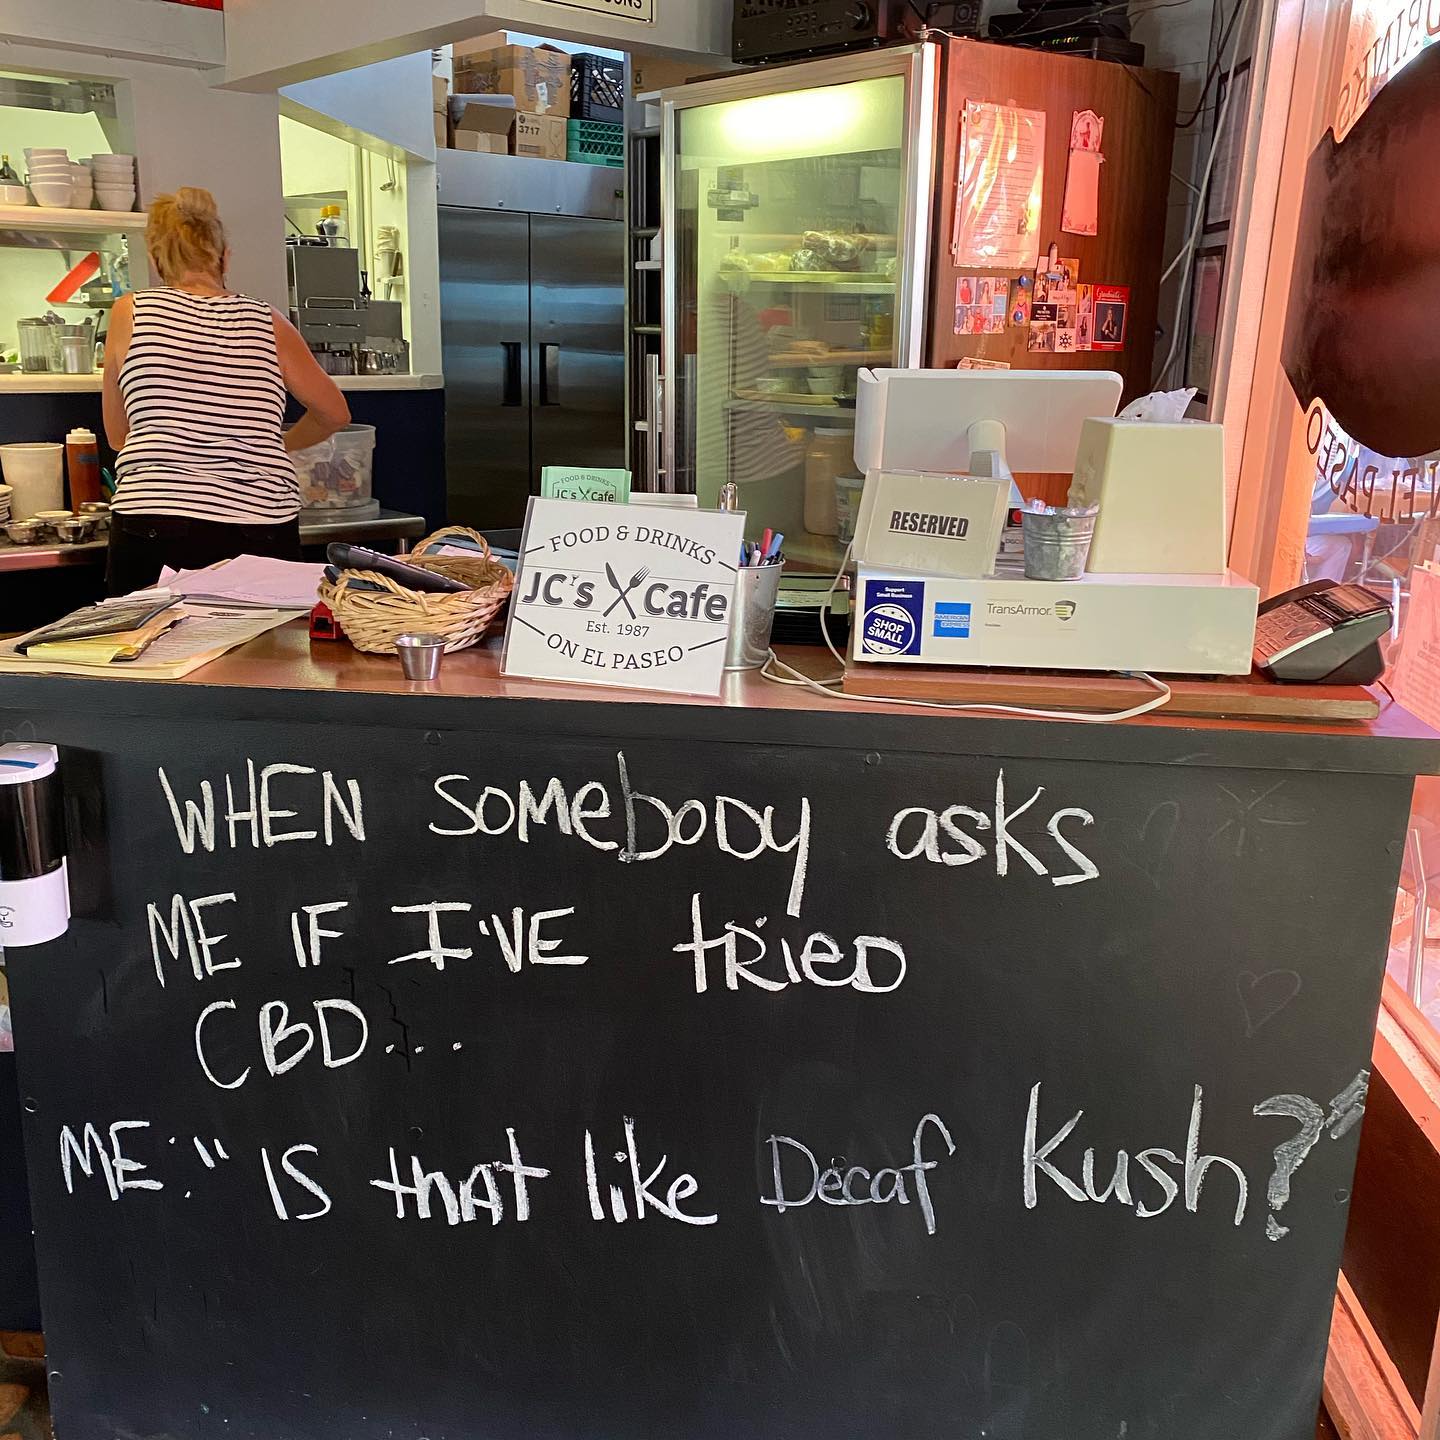 3717
FOOD & DRINKS
JC's Cafe
FOOD & DRINKS
JC's Cafe
Est. 1987
ON EL PASEO
RESERVED
Support
Small Business
SHOP
SMALL
AMERICAN
EXPRESS
TransArmor
DRINKS
ON EL PASEO
WHEN SOMebODy asKS
ME IF I'VE tRieD
CBD...
ME: "IS thAt like Decaf Kush?"